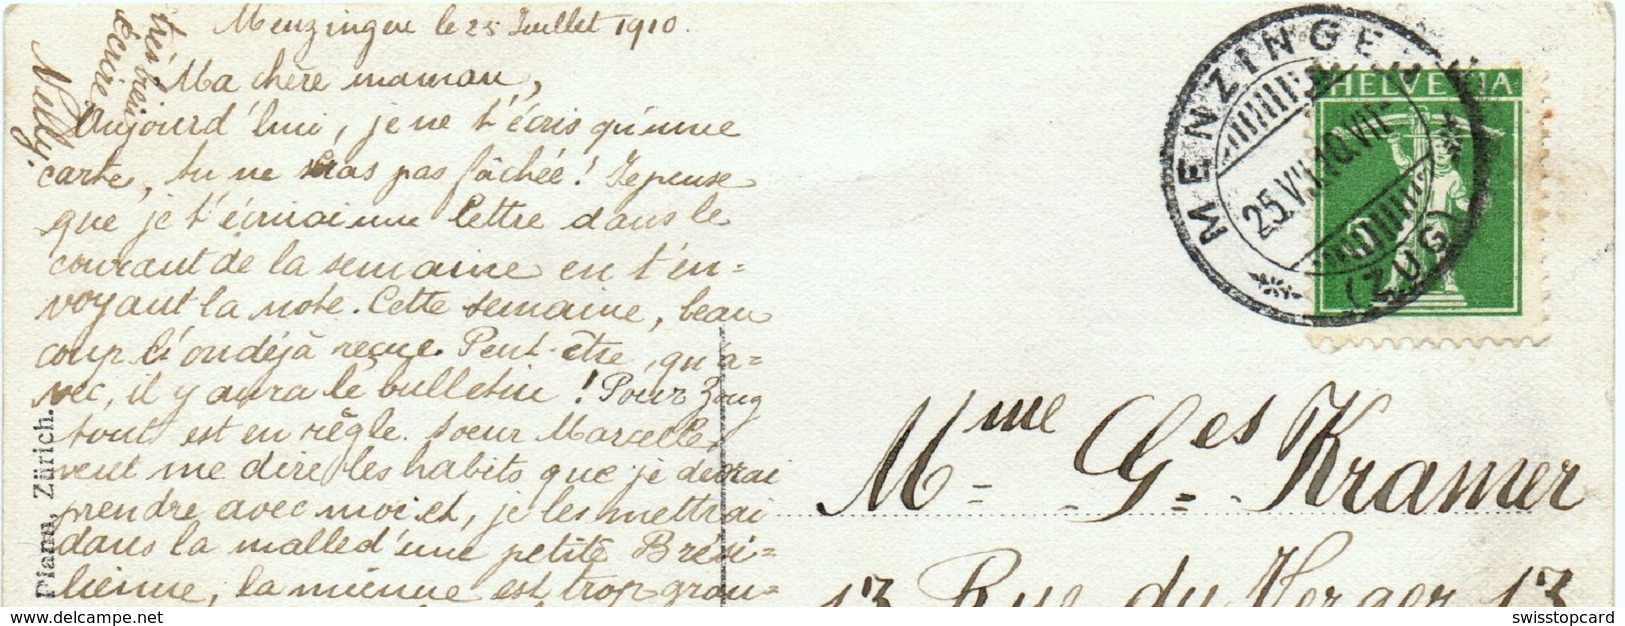 Menzingen le 25 Juillet 1910.
Ma chère maman,
Aujourd'hui, je ne t'écris qu'une
carte, tu ne seras pas fâchée! Je pense
que je t'écrirai une lettre dans le
courant de la semaine en t'en-
voyant la note. Cette semaine, beau
coup l'ont déjà reçue. Peut-être, qu'a-
vec, il y aura le bulletin! Pour Zoug
tout est en règle. Soeur Marcelle,
veut me dire les habits que je devrai
prendre avec moi et, je les mettrai
dans la malle d'une petite Brési-
lienne, la mienne est trop gran-
écrire
Nelly.
MENZINGEN
25.VII.10.VII-
(ZUG)
HELVETIA
Mme Ges Kramer
13 Rue du Verger 13
Zürich.
swisstopcard